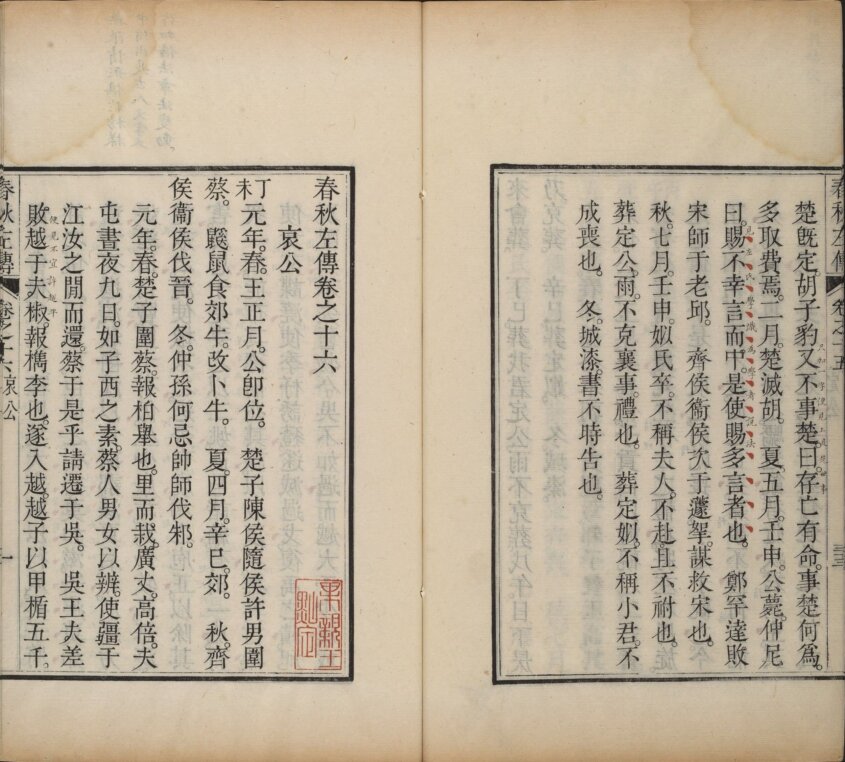 楚旣定。胡子豹又不事楚。曰。存亡有命。事楚何爲。
多取費焉。二月。楚滅胡。 夏。五月。壬申。公薨。仲尼
曰。賜不幸言而中。是使賜多言者也。 鄭罕達敗
見左氏學識爲學者說法
宋師于老邱。 齊侯衞侯次于蘧挐。謀救宋也。
秋。七月。壬申。姒氏卒。不稱夫人。不赴。且不祔也。
葬定公。雨。不克襄事。禮也。 葬定姒。不稱小君。不
成喪也。 冬。城漆。書不時告也。
春秋左傳 卷之十五
春秋左傳卷之十六
哀公
丁未 元年。春。王正月。公卽位。 楚子陳侯隨侯許男圍
蔡。 鼷鼠食郊牛。改卜牛。 夏。四月。辛巳。郊。 秋。齊
侯衞侯伐晉。 冬。仲孫何忌帥師伐邾。
元年。春。楚子圍蔡。報柏舉也。里而栽。廣丈。高倍。夫
屯晝夜九日。如子西之素。蔡人男女以辨。使疆于
江汝之閒而還。蔡于是乎請遷于吳。 吳王夫差
便見不宜許越平
敗越于夫椒。報檇李也。遂入越。越子以甲楯五千。
春秋左傳 卷之十六 哀公 一